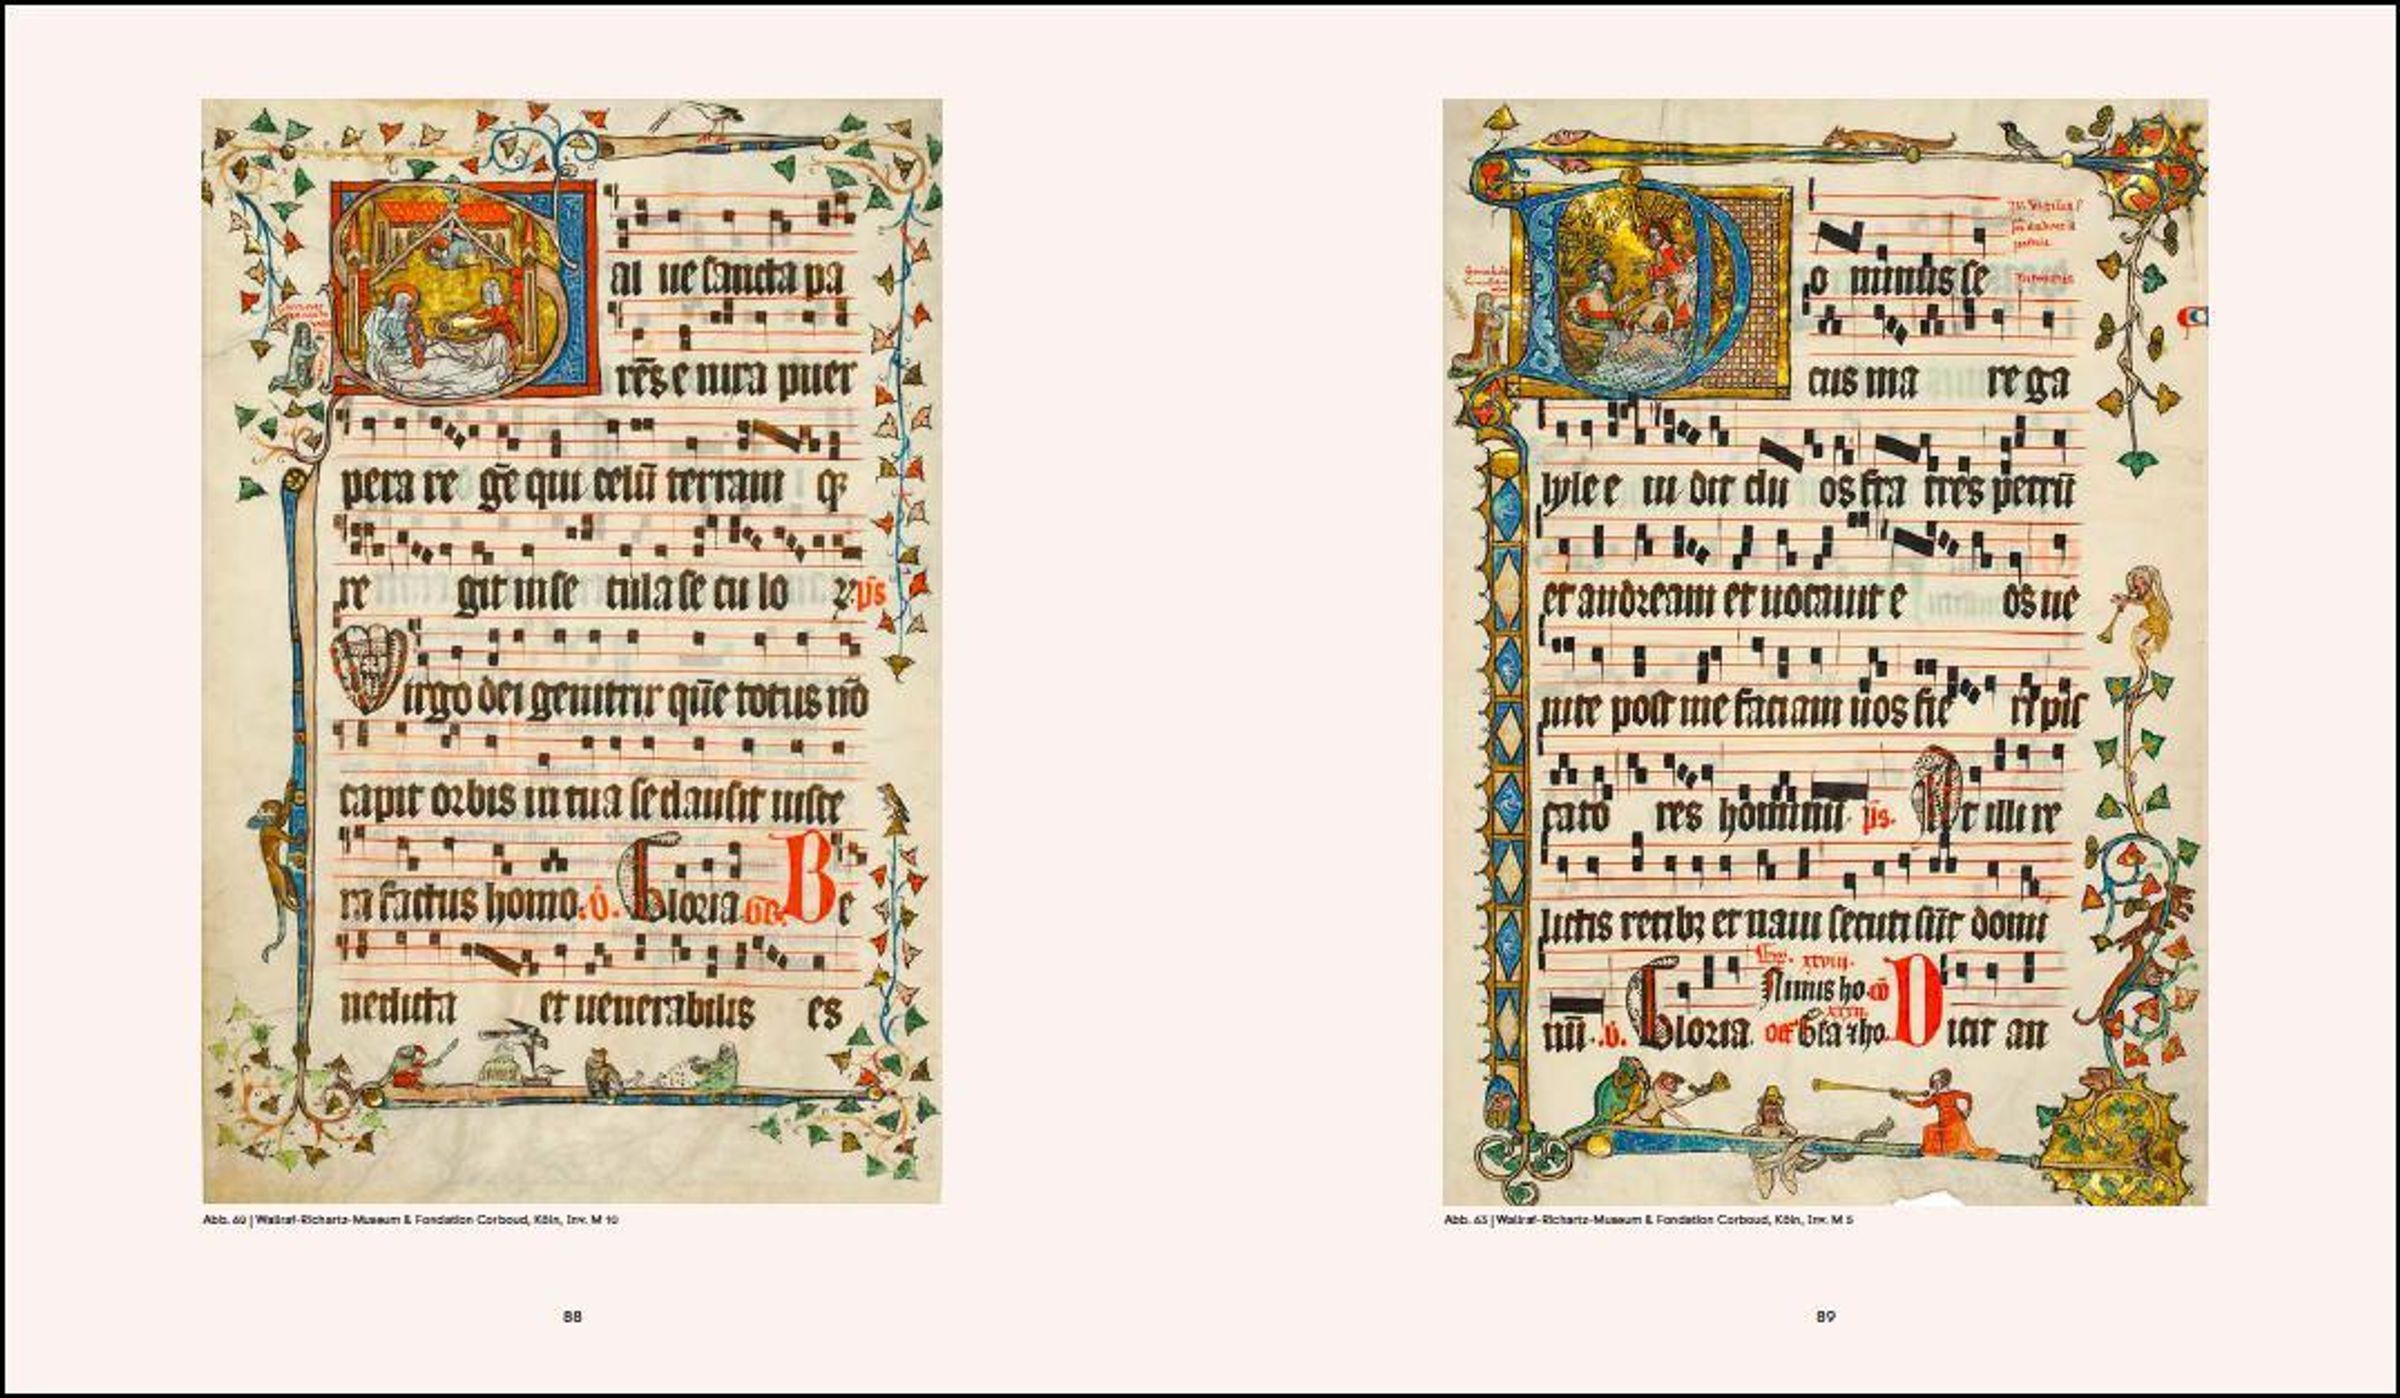 al ue sancta pa
rēs e nira puer
pera re gē qui celū terram q
re git in se cula se cu lo ꝝ p̄s
Virgo dei genitrix quē totus nō
capit orbis in tua se clausit uisce
ra factus homo. v̄. Gloria Be
nedicta et uenerabilis es
Abb. 60 | Wallraf-Richartz-Museum & Fondation Corboud, Köln, Inv. M 10
88
Do minus se
cus ma re ga
lyle e ui dit du os fra tres petrū
et andream et uocauit e os ue
nite post me faciam uos fie ri pis
cato res hominū p̄s. At illi re
lictis retibꝫ et naui secuti sūt domi
Nimis ho
nū. v̄. Gloria. off Gla ꝛ ho. Dicit an
Abb. 63 | Wallraf-Richartz-Museum & Fondation Corboud, Köln, Inv. M 5
89